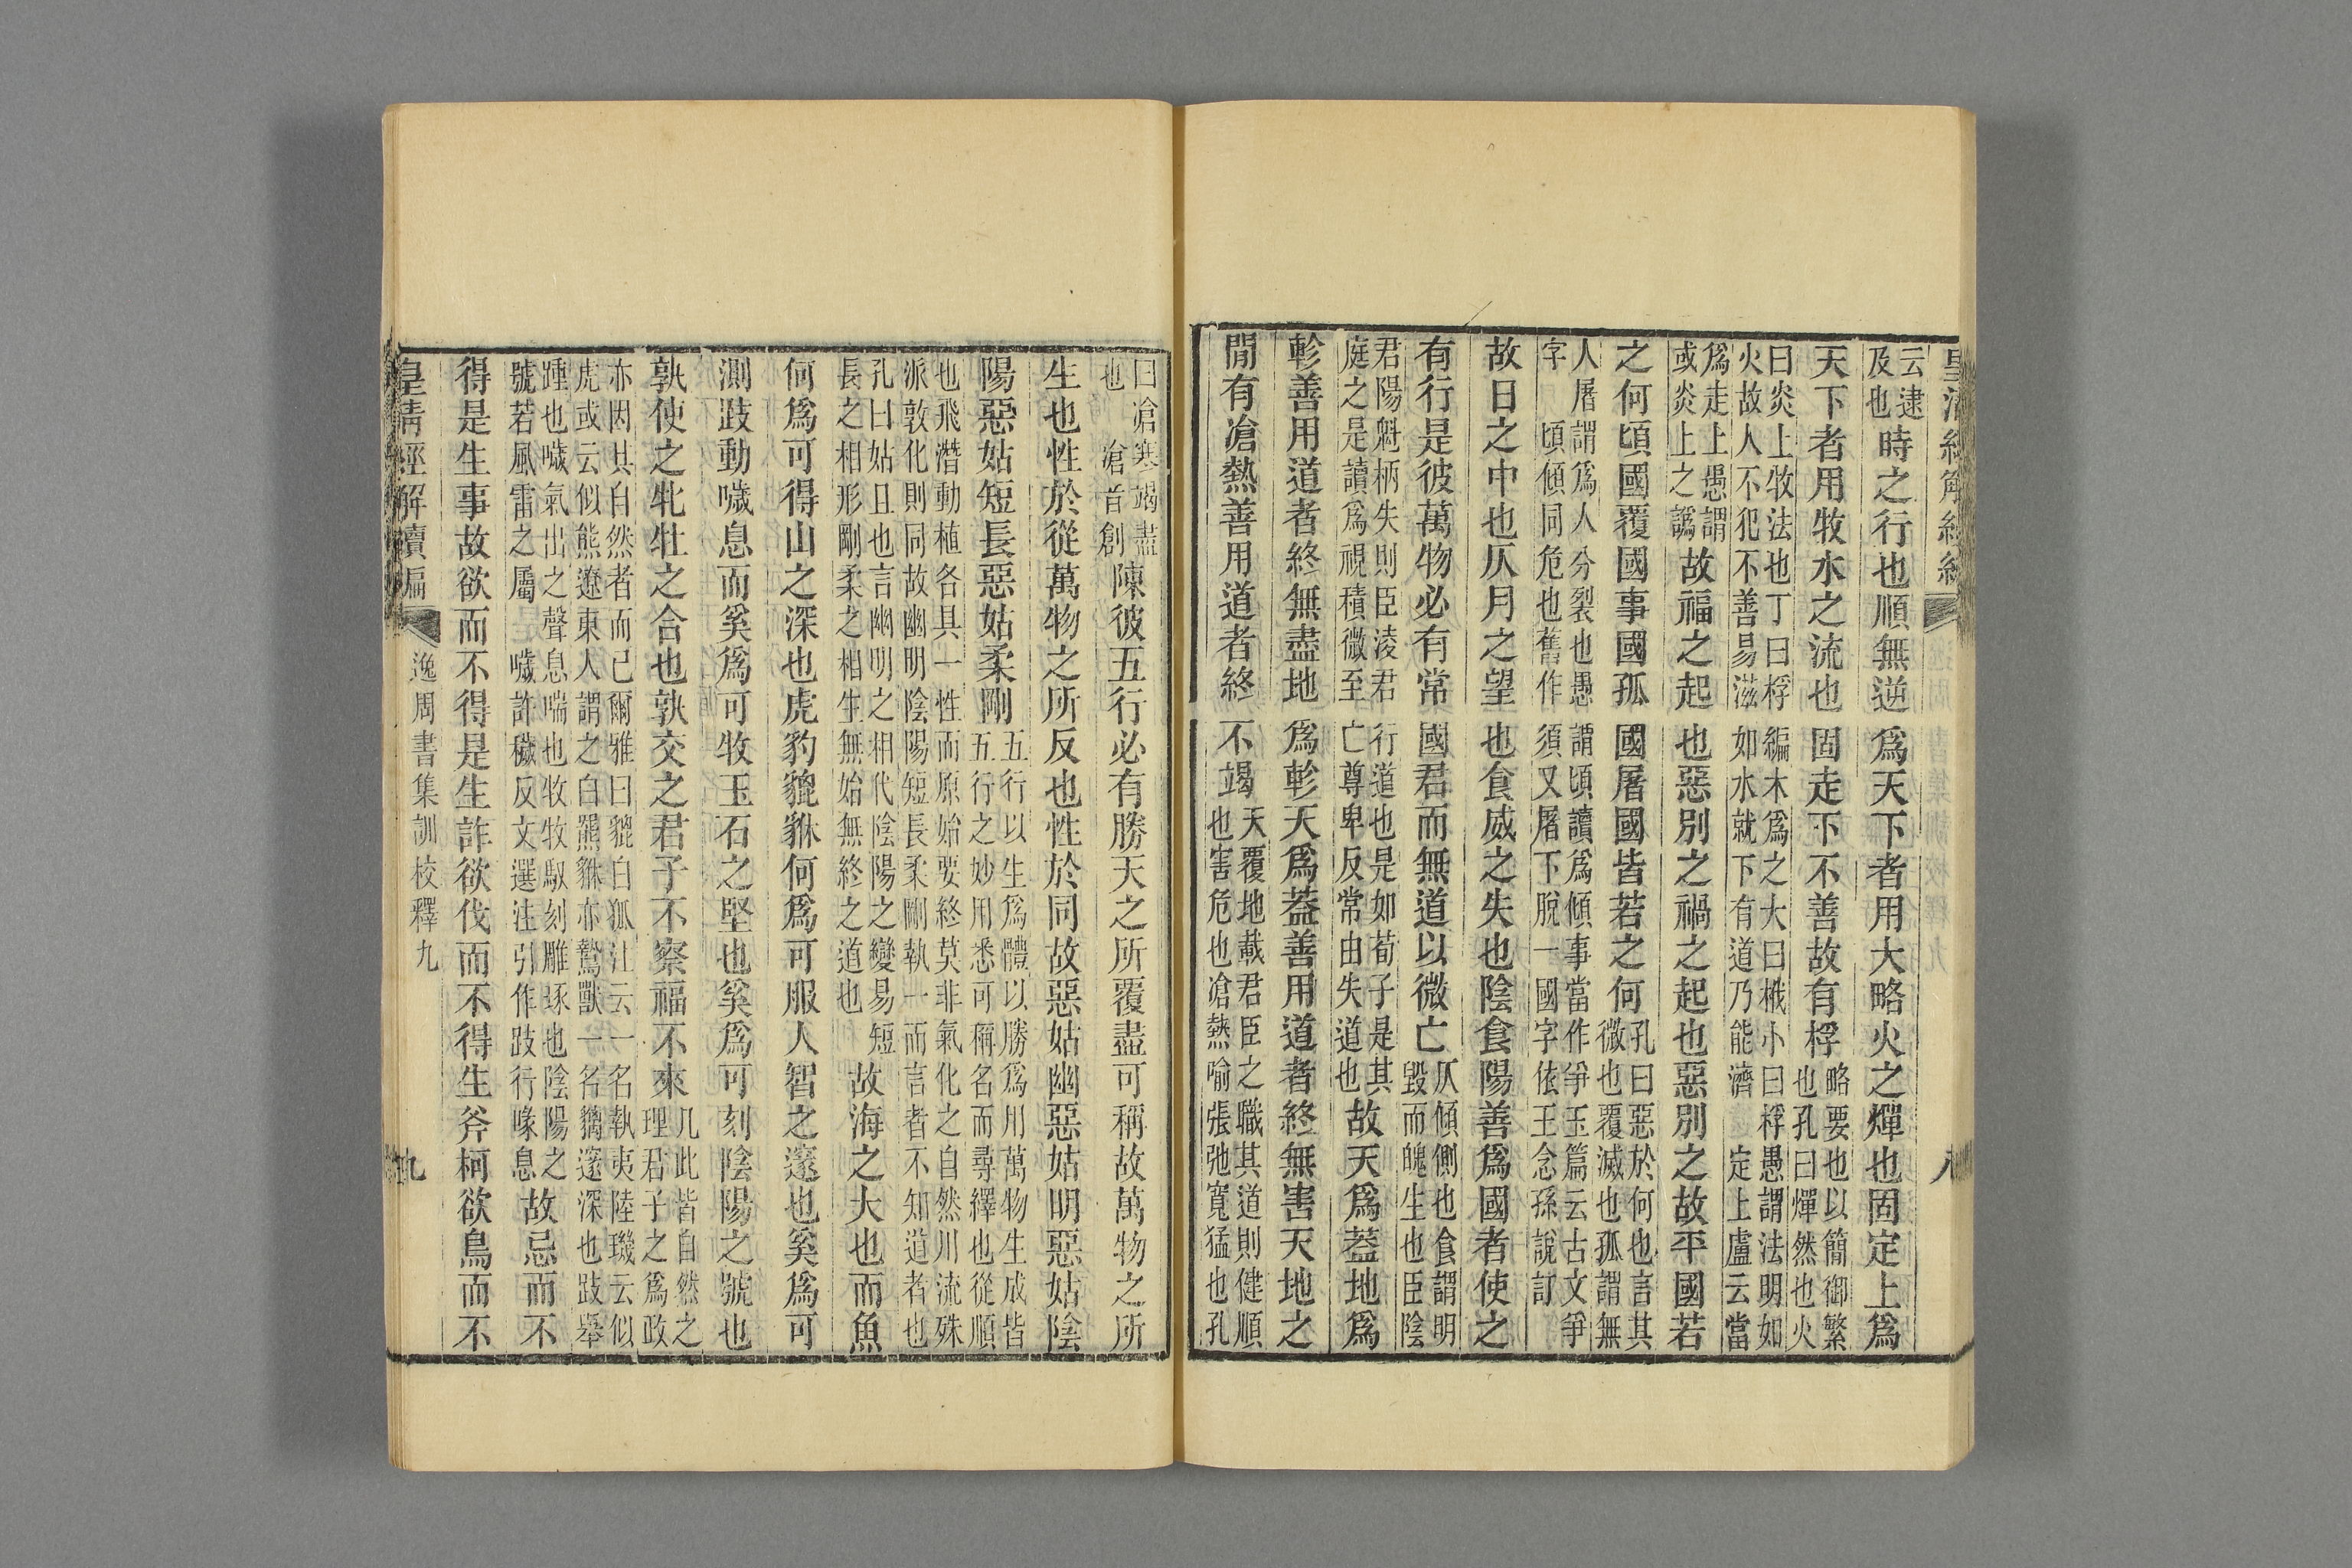 皇清經解續編
八
云逮
及也
時之行也順無逆爲天下者用大略火之燀也固定上爲
天下者用牧水之流也固走下不善故有桴
略要也以簡御繁
也孔曰燀然也火
曰炎上牧法也丁曰桴編木爲之大曰栰小曰桴愚謂法明如
火故人不犯不善易滋如水就下有道乃能濟 定上盧云當
爲走上愚謂
或炎上之譌
故福之起也惡別之禍之起也惡別之故平國若
之何頃國覆國事國孤國屠國皆若之何
孔曰惡於何也言其
微也覆滅也孤謂無
人屠謂爲人分裂也愚謂頃讀爲傾事當作爭玉篇云古文爭
字 頃傾同危也舊作須又屠下脫一國字依王念孫說訂
故日之中也仄月之望也食威之失也陰食陽善爲國者使之
有行是彼萬物必有常國君而無道以微亡
仄傾側也食謂明
毀而魄生也臣陰
君陽魁柄失則臣淩君行道也是如荀子是其
庭之是讀爲視積微至亡尊卑反常由失道也
故天爲蓋地爲
軫善用道者終無盡地爲軫天爲蓋善用道者終無害天地之
閒有凔熱善用道者終不竭
天覆地載君臣之職其道則健順
也害危也凔熱喻張弛寬猛也孔
曰凔寒竭盡
也 凔音創
陳彼五行必有勝天之所覆盡可稱故萬物之所
生也性於從萬物之所反也性於同故惡姑幽惡姑明惡姑陰
陽惡姑短長惡姑柔剛
五行以生爲體以勝爲用萬物生成皆
五行之妙用悉可稱名而尋繹也從順
也飛潛動植各具一性而原始要終莫非氣化之自然川流殊
派敦化則同故幽明陰陽短長柔剛執一而言者不知道者也
孔曰姑且也言幽明之相代陰陽之變易短
長之相形剛柔之相生無始無終之道也
故海之大也而魚
何爲可得山之深也虎豹貔貅何爲可服人智之邃也奚爲可
測跂動噦息而奚爲可牧玉石之堅也奚爲可刻陰陽之號也
孰使之牝牡之合也孰交之君子不察福不來
凡此皆自然之
理君子之爲政
亦因其自然者而已爾雅曰貔白狐注云一名執夷陸璣云似
虎或云似熊遼東人謂之白羆貅亦鷙獸一名貙邃深也跂舉
踵也噦氣出之聲息喘也牧牧馭刻雕琢也陰陽之
號若風雷之屬 噦許穢反文選注引作跂行喙息
故忌而不
得是生事故欲而不得是生詐欲伐而不得生斧柯欲鳥而不
皇清經解續編
逸周書集訓校釋九
九